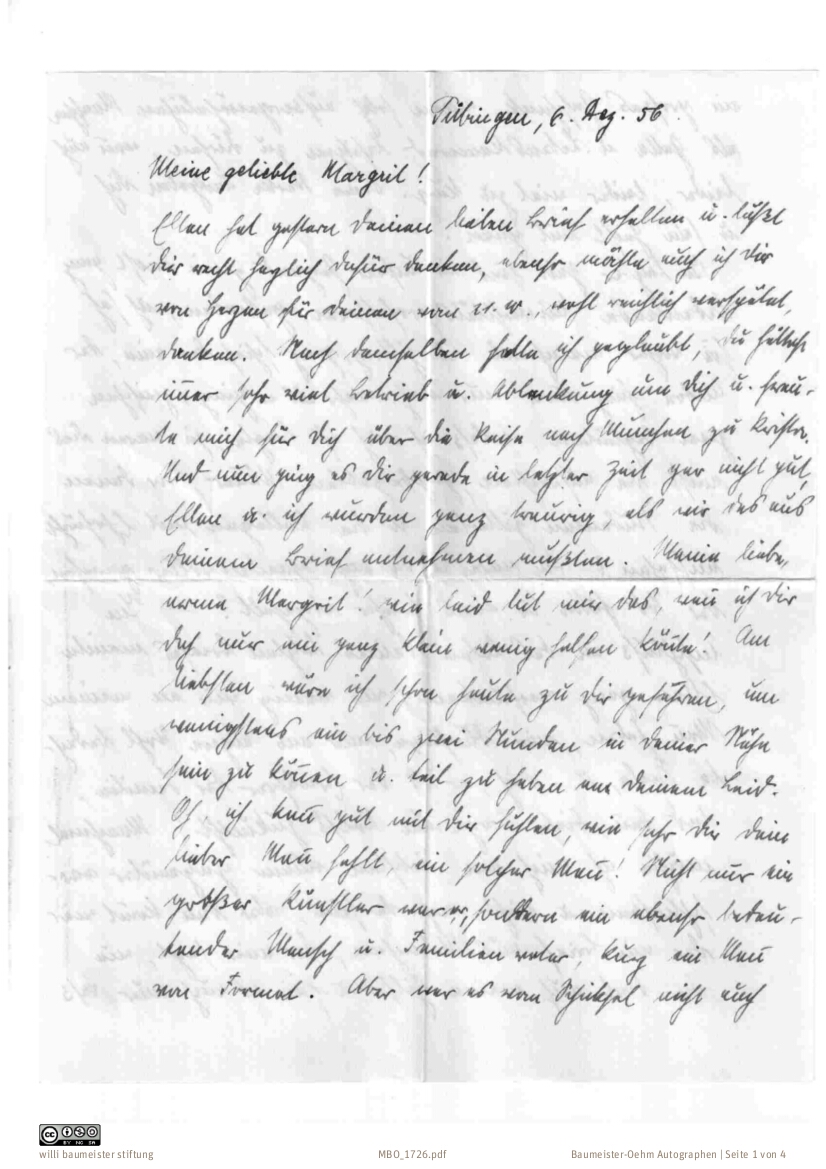 Tübingen, 6. Dez. 56.
Meine geliebte Margrit!
Ellen hat gestern Deinen lieben Brief erhalten u. läßt
Dir recht herzlich dafür danken, ebenso möchte auch ich Dir
von Herzen für Deinen vom 21. v., wohl reichlich verspätet,
danken. Nach demselben hatte ich geglaubt, Du hättest
im̄er sehr viel Betrieb u. Ablenkung um Dich u. freu-
te mich für Dich über die Reise nach München zu Krista.
Und nun ging es Dir gerade in letzter Zeit gar nicht gut,
Ellen u. ich wurden ganz traurig, als wir das aus
Deinem Brief entnehmen mußten. Meine liebe,
arme Margrit! wie leid tut mir das, wen̄ ich Dir
doch nur ein ganz klein wenig helfen kön̄te! Am
liebsten wäre ich schon heute zu Dir gefahren, um
wenigstens ein bis zwei Stunden in Deiner Nähe
sein zu kön̄en u. teil zu haben an Deinem Leid.
Oh ich kan̄ gut mit Dir fühlen, wie sehr Dir Dein
lieber Man̄ fehlt, ein solcher Man̄! Nicht nur ein
großer Künstler war er, sondern ein ebenso bedeu-
tender Mensch u. Familienvater, kurz ein Man̄
von Format. Aber war es vom Schicksal nicht auch
willi baumeister stiftung
MBO_1726.pdf
Baumeister-Oehm Autographen | Seite 1 von 4
CC BY NC SA